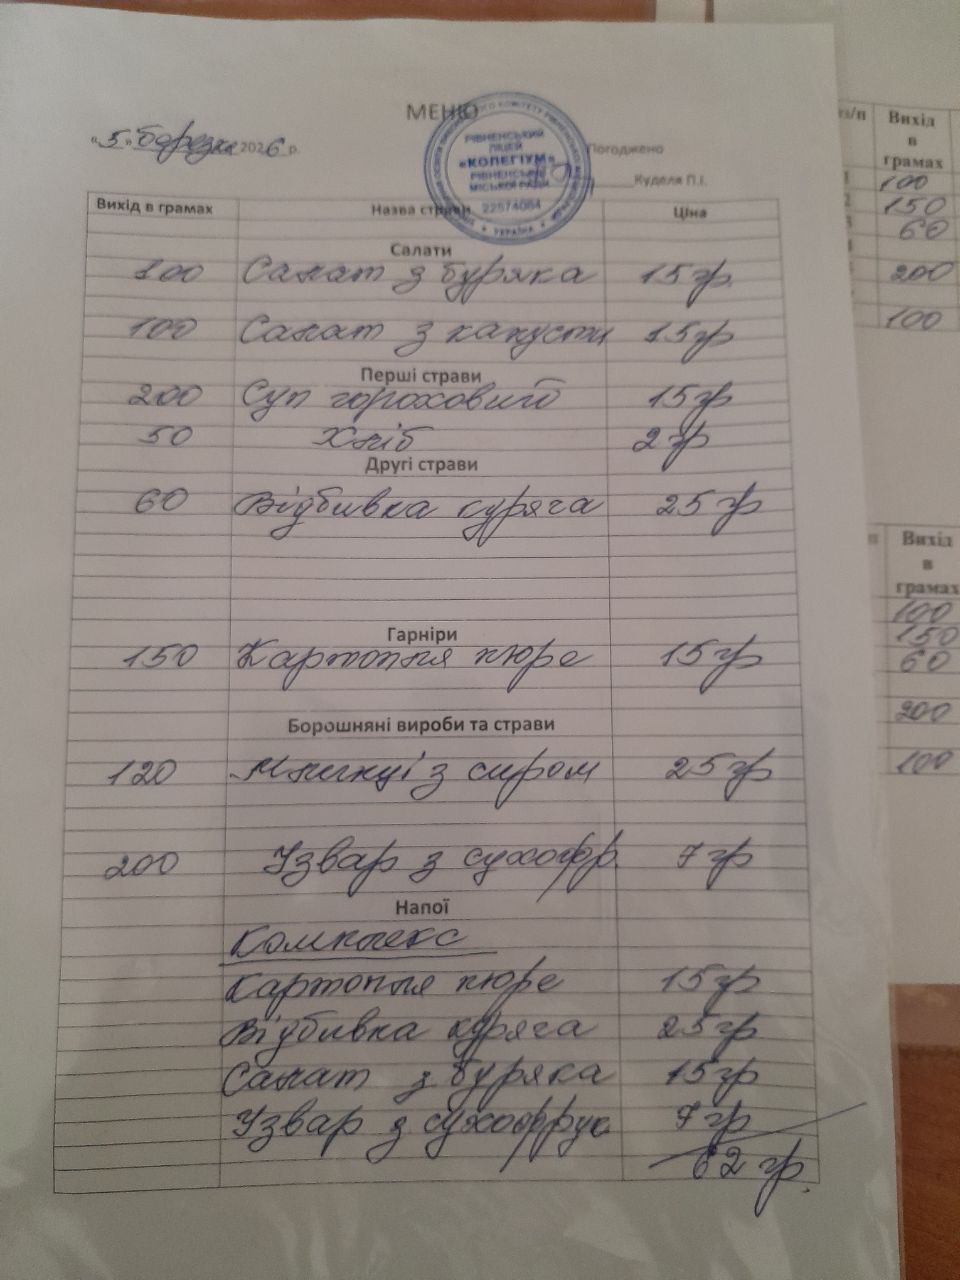 МЕНЮ
«5» березня 2026 р.
Погоджено
Куделя П.І.
РІВНЕНСЬКИЙ
ЛІЦЕЙ
«КОЛЕГІУМ»
РІВНЕНСЬКОЇ
МІСЬКОЇ РАДИ
22574084
УКРАЇНА
Вихід в грамах Назва страви Ціна
Салати
100 Салат з буряка 15 гр.
100 Салат з капусти 15 гр
Перші страви
200 Суп горохового 15 гр
50 Хліб 2 гр
Другі страви
60 Відбивка куряча 25 гр
Гарніри
150 Картопля пюре 15 гр
Борошняні вироби та страви
120 Млинці з сиром 25 гр
200 Узвар з сухофр. 7 гр
Напої
Комплекс
Картопля пюре 15 гр
Відбивка куряча 25 гр
Салат з буряка 15 гр
Узвар з сухофрук 7 гр
62 гр.
з/п Вихід
в
грамах
100
150
60
200
100
п Вихід
в
грамах
100
150
60
200
100